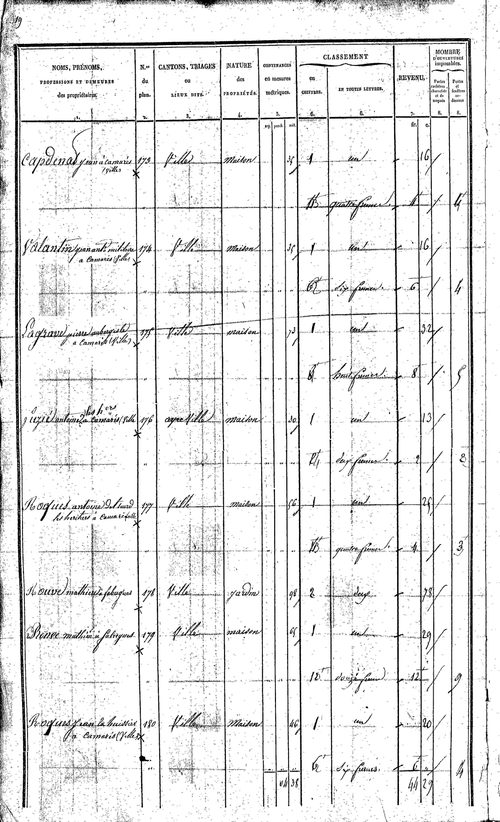 19
NOMS, PRÉNOMS, PROFESSIONS ET DEMEURES des propriétaires.
N.os du plan.
CANTONS, TRIAGES OU LIEUX DITS.
NATURE des PROPRIÉTÉS.
CONTENANCES en mesures métriques.
CLASSEMENT
en CHIFFRES.
EN TOUTES LETTRES.
REVENU.
NOMBRE D'OUVERTURES imposables.
1. 2. 3. 4. 5. 6. 6. 7. 8. 8.
fr. c.
Capdenat jean à Camarès (Ville) 173 Ville Maison 1 un 16
4f quatre francs 4 4
Valantin jean ant. militaire à Camarès (Ville) 174 Ville Maison 35 1 un 16
6f six francs 6 4
Lagrave pierre aubergiste à Camarès (Ville) 175 Ville maison 73 1 un 32
8f huit francs 8 5
antoine ses hers à Camarès (Ville 176 Ville maison 30 1 un 13
2f deux francs 2 2
Roques antoine
ses héritiers à Camarès ville 177 Ville maison 56 1 un 25
4f quatre francs 4 3
Rouve mathieu à fabregues 178 Ville jardin 98 2 deux 78
mathieu à fabregues 179 Ville maison 65 1 un 29
12f douze francs 12 9
Roques jean huissier
à Camarès (Ville) 180 Ville Maison 46 1 un 20
6f six francs 6 4
04 38 44 29